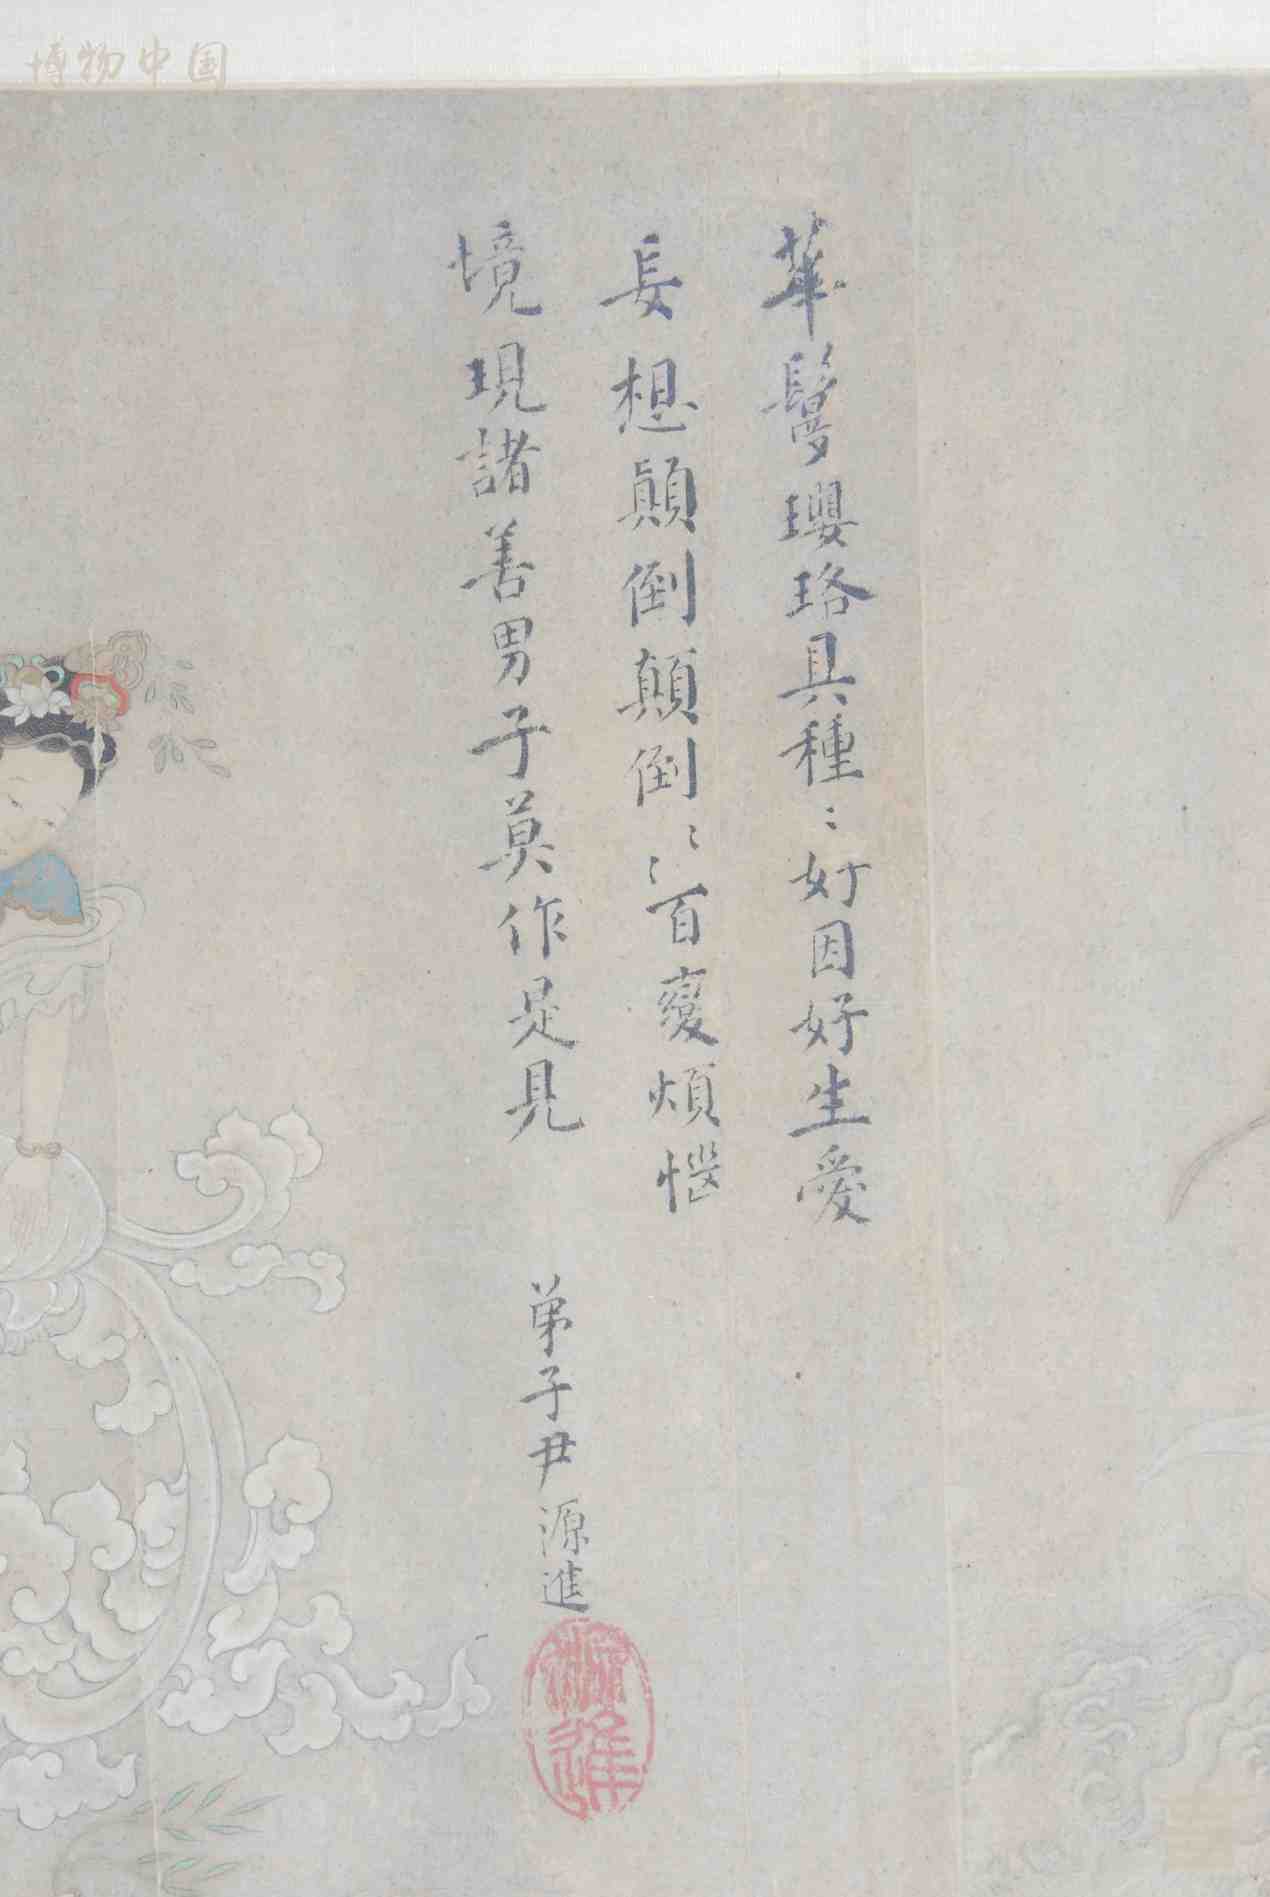 博物中国
華鬘瓔珞具種〻好因好生愛
妄想顛倒顛倒〻〻百變煩惱
境現諸善男子莫作是見
弟子尹源進
源進